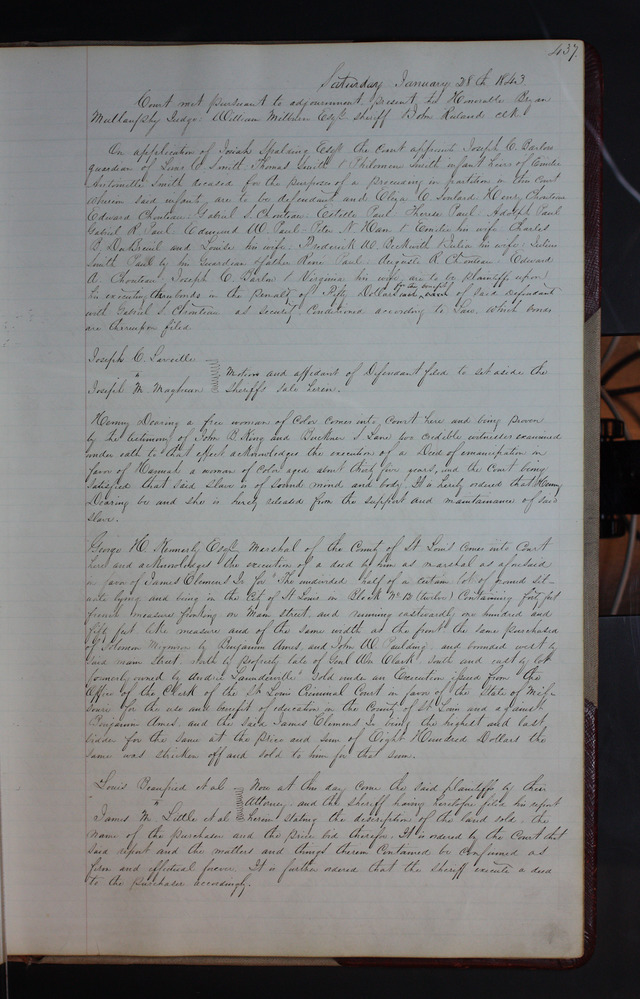 437.
Saturday January 28th 1843
Court met pursuant to adjournment, present, his Honorable Bryan
Mullanphy Judge. William Milburn Esqr. sheriff & John Ruland clerk
On application of Josiah Spalding Esqr the court appoints Joseph C. Barlow
guardian of Louis A. Smith, Thomas Smith & Philomen Smith infant heirs of Emilie
Antoinette Smith deceased for the purposes of a proceeding in partition in this court
wherein said infants are to be defendants and Eliza C. Soulard Henry Chouteau
Edward Chouteau. Gabriel S. Chouteau. Estelle Paul. Therese Paul. Adolph Paul
Gabriel R. Paul. Edmund W. Paul. Peter N. Ham & Emilie his wife. Charles
B. and Louise his wife. Frederick W. Beckwith & Julia his wife: Julius
Smith Paul by his Guardian & father Rene Paul. Auguste R. Chouteau. Edward
A. Chouteau. Joseph C. Barlow & Virginia his wife, are to be plaintiffs upon
his executing three bonds in the penalty of Fifty Dollars each, for the benefit of said defendants
with Gabriel S. Chouteau as security Conditioned according to Law. Which bonds
are thereupon filed
Joseph C. Laveille
vs
Joseph M. Mayhew
Motion and affidavit of Defendant filed to set aside the
Sheriffs sale herein.
Henny Dearing a free woman of Color comes into Court here and being proven
by the testimony of John B. King and Buckner S. Lane two credible witnesses examined
under oath to that effect acknowledges the execution of a Deed of emancipation in
favor of Hannah a woman of color aged about thirty five years, and the Court being
satisfied that said slave is of sound mind and body. It is hereby ordered that Henny
Dearing be and she is hereby released from the support and maintainance of said
slave.
George H. Kennerly Esqr. Marshal of the County of St Louis comes into Court
here and acknowledges the execution of a deed by him as marshal as aforesaid
in favor of James Clemens Jr for "The undivided half of a certain lot of ground sit-
uate lying and being in the City of St Louis in Block No 12 (twelve) Containing forty feet
french measure fronting on Main street, and running eastwardly one hundred and
fifty feet like measure and of the same width as the front the same purchased
of Solomon Migneron by Benjamin Ames, and John W. Paulding. and bounded west by
said main street. North by property late of Genl Wm Clark. South and east by lot
formerly owned by Andre Landreville" Sold under an Execution issued from the
Office of the Clerk of the St Louis Criminal Court in favor of the State of Miss-
souri for the use and benefit of education in the County of St Louis and against
Benjamin Ames. and the said James Clemens Jr being the highest and last
bidder for the same at the price and sum of Eight Hundred Dollars the
same was stricken off and sold to him for that sum.
Louis et al
vs
James M. Little et al
Now at this day come the said plaintiffs by their
Attorney and the sheriff having heretofore filed his report
herein stating the description of the land sold, the
name of the purchaser and the price bid therefor. It is ordered by the Court that
said report and the matters and things therein contained be confirmed as
firm and effectual forever. It is further ordered that the Sheriff execute a deed
to the purchaser accordingly.